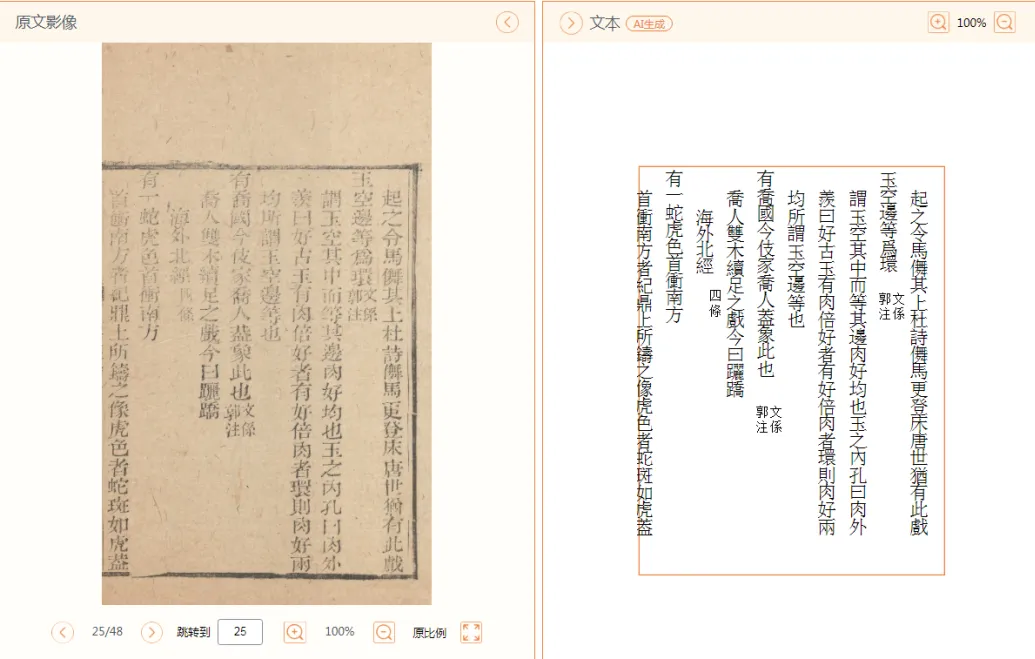 原文影像
起之令馬儛其上杜詩儛馬更登床唐世猶有此戲
玉空邊等爲環 文係郭注
謂玉空其中而等其邊肉好均也玉之內孔曰肉外
羨曰好古玉有肉倍好者有好倍肉者環則肉好兩
均所謂玉空邊等也
有喬國今伎家喬人葢象此也 文係郭注
喬人雙木續足之戲今曰躧蹻
海外北經 四條
有一蛇虎色首衝南方
首衝南方者紀鼎上所鑄之像虎色者蛇斑如虎葢
25/48 跳转到 25 100% 原比例
文本 AI生成 100%
起之令馬儛其上杜詩儛馬更登床唐世猶有此戲
玉空邊等爲環 文係郭注
謂玉空其中而等其邊肉好均也玉之內孔曰肉外
羨曰好古玉有肉倍好者有好倍肉者環則肉好兩
均所謂玉空邊等也
有喬國今伎家喬人葢象此也 文係郭注
喬人雙木續足之戲今曰躧蹻
海外北經 四條
有一蛇虎色首衝南方
首衝南方者紀鼎上所鑄之像虎色者蛇斑如虎葢